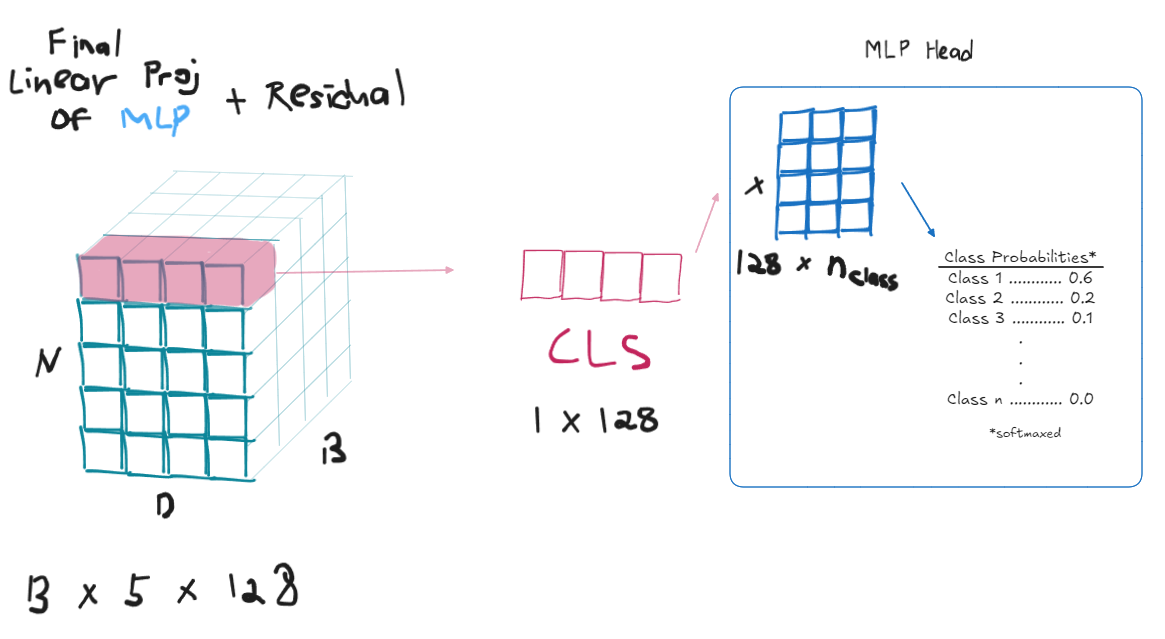 Final
Linear Proj
Of MLP
+ Residual
N
D
B
B x 5 x 128
CLS
1 x 128
MLP Head
x
128 x nclass
Class Probabilities*
Class 1 ............ 0.6
Class 2 ............ 0.2
Class 3 ............ 0.1
.
.
.
Class n ............ 0.0
*softmaxed